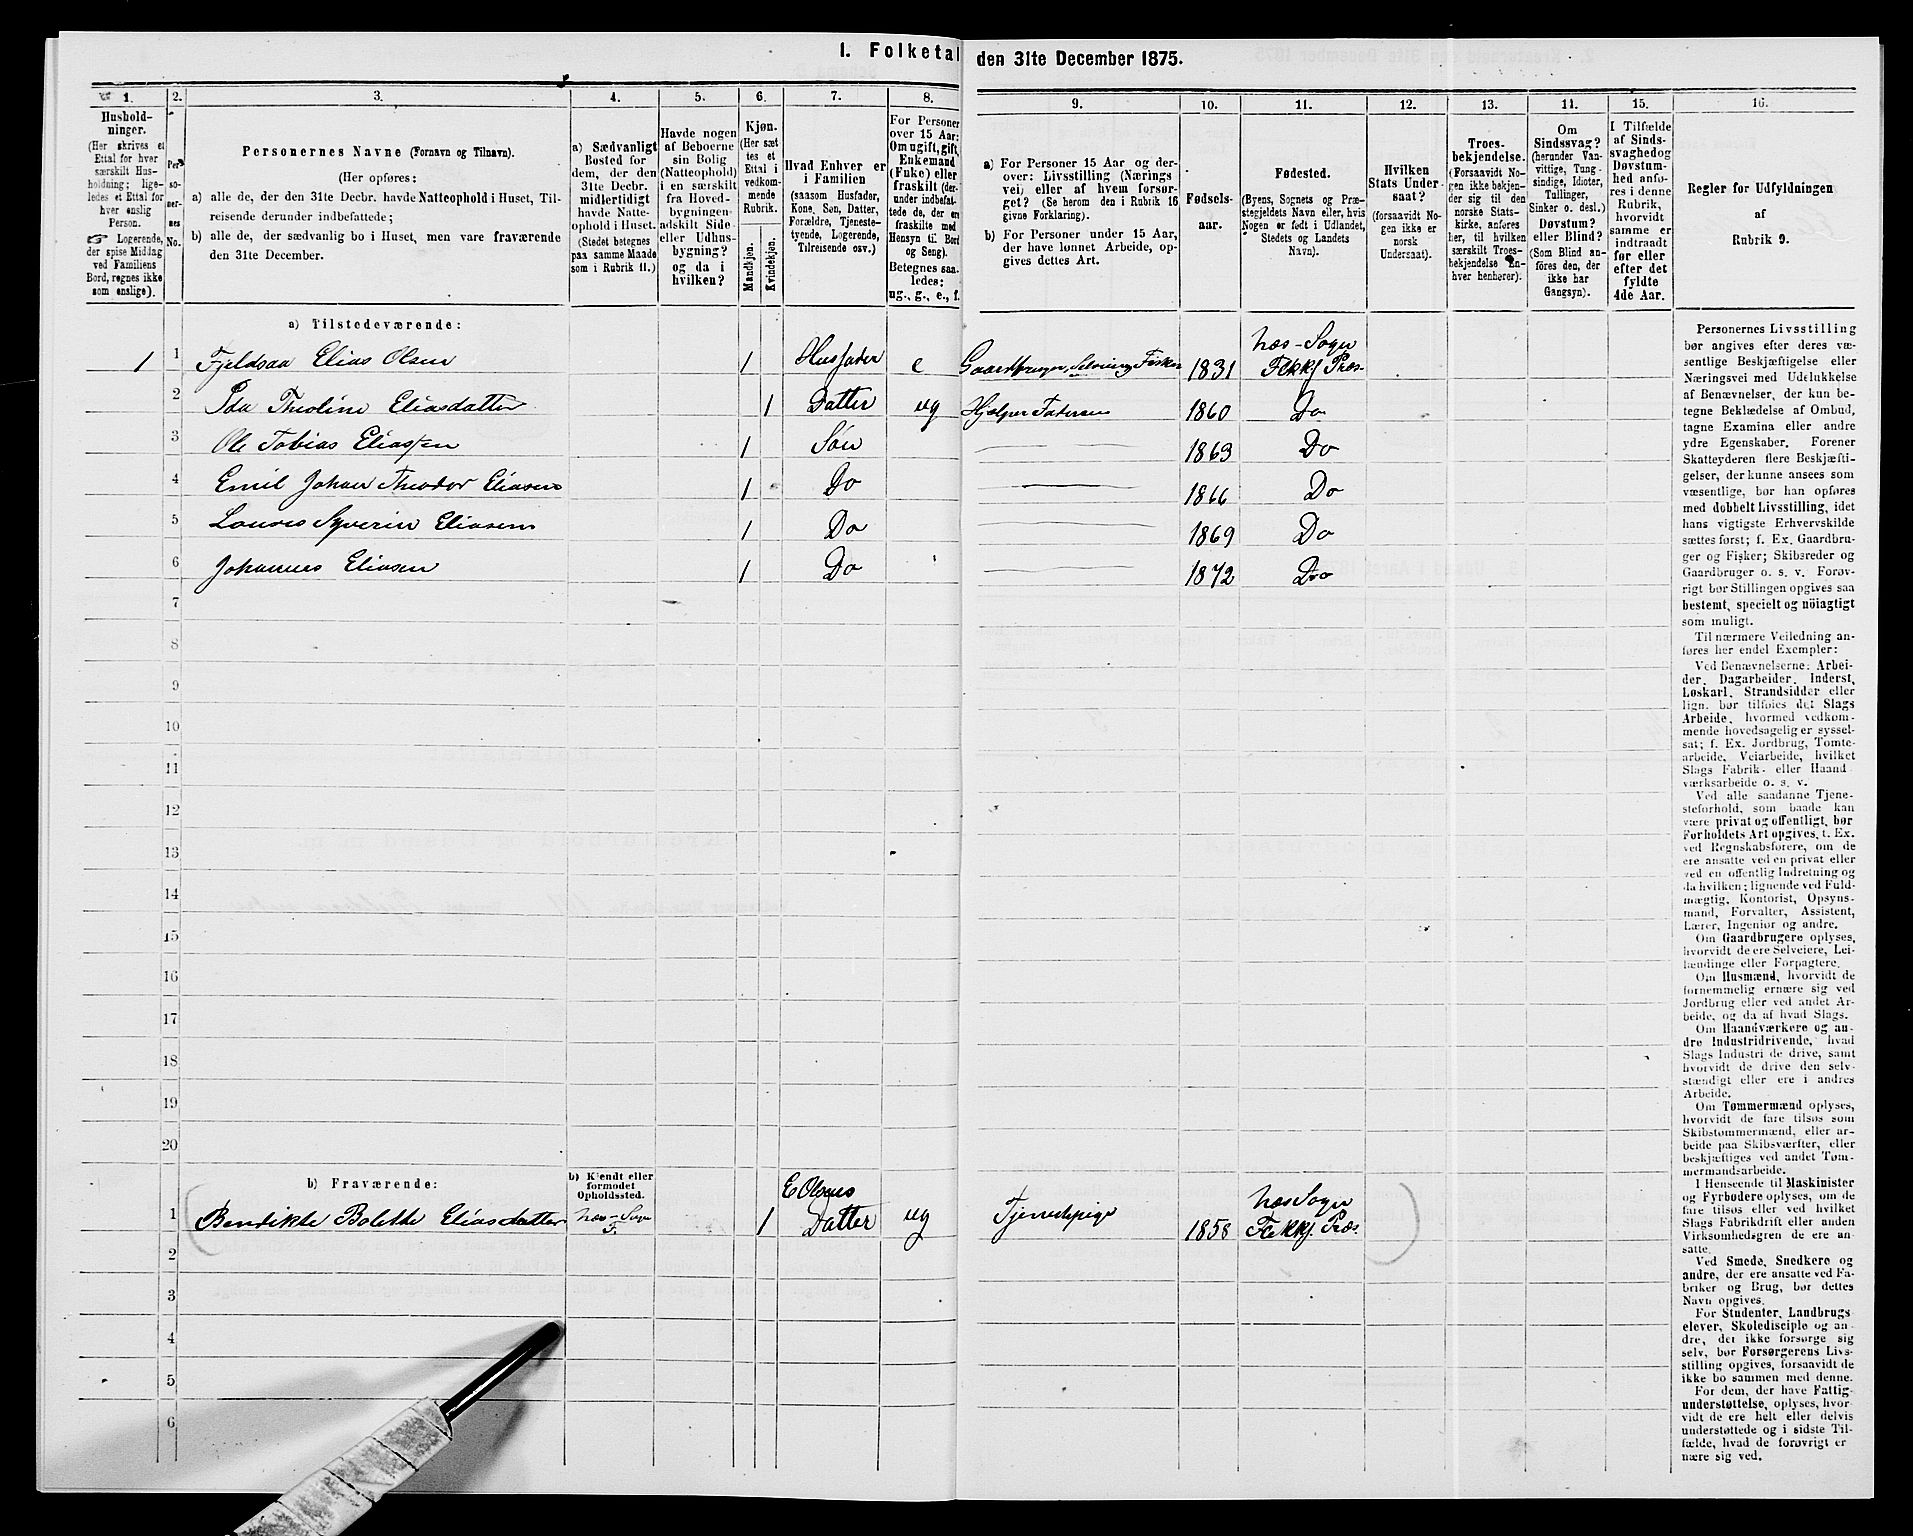 I. Folketal den 31te December 1875.
1.
Husholdninger.
(Her skrives et
Ettal for hver
særskilt Husholdning;
ligeledes et Ettal for
hver enslig
Person.
☞ Logerende,
der spise Middag
ved Familiens
Bord, regnes ikke
som enslige).
2.
Personernes
No.
3.
Personernes Navne (Fornavn og Tilnavn).
(Her opføres:
a) alle de, der den 31te Decbr. havde Natteophold i Huset, Tilreisende
derunder indbefattede;
b) alle de, der sædvanlig bo i Huset, men vare fraværende
den 31te December.
4.
a) Sædvanligt
Bosted for
dem, der den
31te Decbr.
midlertidigt
havde Natteophold
i Huset.
(Stedet betegnes
paa samme Maade
som i Rubrik 11.)
5.
Havde nogen
af Beboerne
sin Bolig
(Natteophold)
i en særskilt
fra Hovedbygningen
adskilt Side-
eller Udhusbygning?
og da i
hvilken?
6.
Kjøn.
(Her sættes
et
Ettal i
vedkommende
Rubrik.
Mandkjøn.
Kvindekjøn.
7.
Hvad Enhver er
i Familien
(saasom Husfader,
Kone, Søn, Datter,
Forældre, Tjenestetyende,
Logerende,
Tilreisende osv.)
8.
For Personer
over 15 Aar:
Om ugift, gift,
Enkemand
(Enke) eller
fraskilt (derunder
indbefattede
de, der ere
fraskilte med
Hensyn til Bord
og Seng).
Betegnes saaledes:
ug., g., e., f.
9.
a) For Personer 15 Aar og derover:
Livsstilling (Næringsvei)
eller af hvem forsørget?
(Se herom den i Rubrik 16
givne Forklaring).
b) For Personer under 15 Aar,
der have lønnet Arbeide, opgives
dettes Art.
10.
Fødselsaar.
11.
Fødested.
(Byens, Sognets og Præstegjeldets
Navn eller, hvis
Nogen er født i Udlandet,
Stedets og Landets
Navn).
12.
Hvilken
Stats Undersaat?
(forsaavidt Nogen
ikke er
norsk
Undersaat).
13.
Troesbekjendelse.
(Forsaavidt Nogen
ikke bekjender
sig til den
norske Statskirke,
anføres
her, til hvilken
særskilt Troesbekjendelse
Enhver
henhører).
14.
Om
Sindssvag?
(herunder Vanvittige,
Tungsindige,
Idioter,
Tullinger,
Sinker o. desl.)
Døvstum?
eller Blind?
(Som Blind anføres
den, der
ikke har
Gangsyn).
15.
I Tilfælde
af Sindssvaghed og
Døvstumhed
anføres
i denne
Rubrik,
hvorvidt
samme er
indtraadt
før eller
efter det
fyldte
4de Aar.
16.
Regler for Udfyldningen
af
Rubrik 9.
a) Tilstedeværende:
1 1 Fjeldsaa Elias Olsen 1 Husfader e Gaardbruger, Selveier, Fisker 1831 Næs-Sogn Flekkf Præs-
2 Ida Theoline Eliasdatter 1 Datter ug Hjælper Faderen 1860 Do
3 Ole Tobias Eliassen 1 Søn 1863 Do
4 Emil Johan Theodor Eliasen 1 Do 1866 Do
5 Syverin Eliasen 1 Do 1869 Do
6 Johannes Eliasen 1 Do 1872 Do
7
8
9
10
11
12
13
14
15
16
17
18
19
20
b) Fraværende:
b) Kjendt eller
formodet
Opholdssted.
1 Bendikte Bolette Eliasdatter Næs-Sogn F. 1 E Olsens Datter ug Tjenestepige 1858 Næs Sogn Flekkf. Præs.
2
3
4
5
6
Personernes Livsstilling
bør angives efter deres væsentlige
Beskjæftigelse eller
Næringsvei med Udelukkelse
af Benævnelser, der kun betegne
Beklædelse af Ombud,
tagne Examina eller andre
ydre Egenskaber. Forener
Skatteyderen flere Beskjæftigelser,
der kunne ansees som
væsentlige, bør han opføres
med dobbelt Livsstilling, idet
hans vigtigste Erhvervskilde
sættes først; f. Ex. Gaardbruger
og Fisker; Skibsreder og
Gaardbruger o. s. v. Forøvrigt
bør Stillingen opgives saa
bestemt, specielt og nöiagtigt
som muligt.
Til nærmere Veiledning anføres
her endel Exempler:
Ved Benævnelserne: Arbeider,
Dagarbeider, Inderst,
Løskarl, Strandsidder eller
lign. bør tilføies det Slags
Arbeide, hvormed vedkommende
hovedsagelig er sysselsat;
f. Ex. Jordbrug, Tomtearbeide,
Veiarbeide, hvilket
Slags Fabrik- eller Haandværksarbeide
o. s. v.
Ved alle saadanne Tjenesteforhold,
som baade kan
være privat og offentligt, bør
Forholdets Art opgives, t. Ex.
ved Regnskabsførere, om de
ere ansatte ved en privat eller
ved en offentlig Indretning og
da hvilken; lignende ved Fuldmægtig,
Kontorist, Opsynsmand,
Forvalter, Assistent,
Lærer, Ingeniør og andre.
Om Gaardbrugere oplyses,
hvorvidt de ere Selveiere, Leilændinge
eller Forpagtere.
Om Husmænd, hvorvidt de
fornemmelig ernære sig ved
Jordbrug eller ved andet Arbeide,
og da af hvad Slags.
Om Haandværkere og andre
Industridrivende, hvad
Slags Industri de drive, samt
hvorvidt de drive den selvstændigt
eller ere i andres
Arbeide.
Om Tømmermænd oplyses,
hvorvidt de fare tilsøs som
Skibstømmermænd, eller arbeide
paa Skibsværfter, eller
beskjæftiges ved andet Tømmermandsarbeide.
I Henseende til Maskinister
og Fyrbødere oplyses, om de
fare tilsøs eller ved hvilket
Slags Fabrikdrift eller anden
Virksomhedsgren de ere ansatte.
Ved Smede, Snedkere og
andre, der ere ansatte ved Fabriker
og Brug, bør dettes
Navn opgives.
For Studenter, Landbrugselever,
Skoledisciple og andre,
der ikke forsørge sig
selv, bør Forsørgerens Livsstilling
opgives, forsaavidt de
ikke bo sammen med denne.
For dem, der have Fattigunderstøttelse,
oplyses, hvorvidt
de ere helt eller delvis
understøttede og i sidste Tilfælde,
hvad de forøvrigt ernære
sig ved.